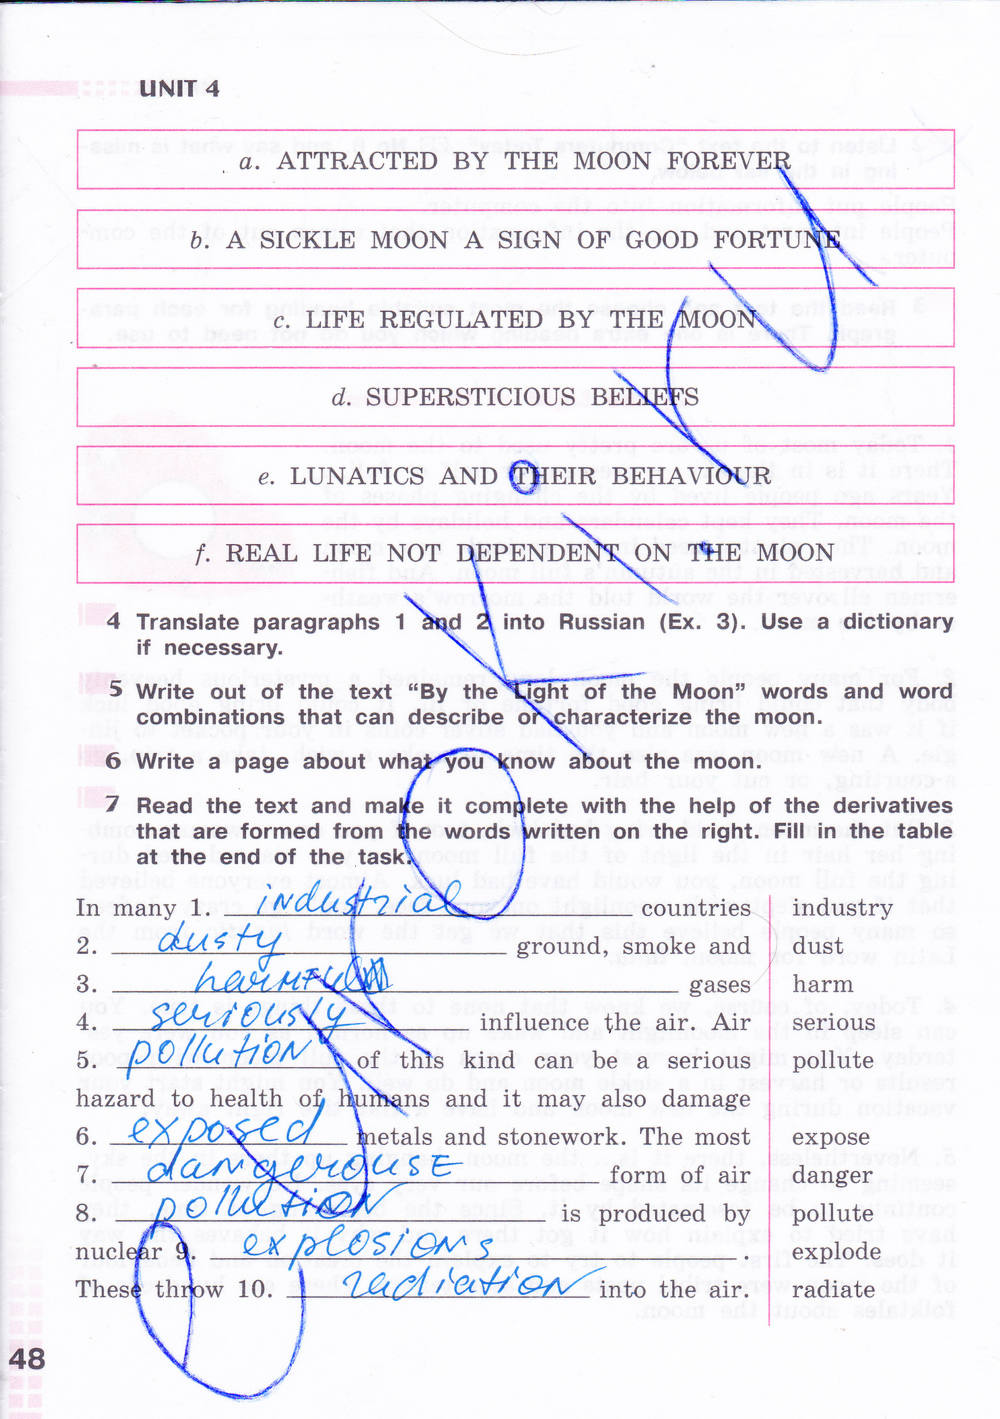 UNIT 4
a. ATTRACTED BY THE MOON FOREVER
b. A SICKLE MOON A SIGN OF GOOD FORTUNE
c. LIFE REGULATED BY THE MOON
d. SUPERSTICIOUS BELIEFS
e. LUNATICS AND THEIR BEHAVIOUR
f. REAL LIFE NOT DEPENDENT ON THE MOON
4 Translate paragraphs 1 and 2 into Russian (Ex. 3). Use a dictionary
if necessary.
5 Write out of the text “By the Light of the Moon” words and word
combinations that can describe or characterize the moon.
6 Write a page about what you know about the moon.
7 Read the text and make it complete with the help of the derivatives
that are formed from the words written on the right. Fill in the table
at the end of the task.
In many 1. industrial countries industry
2. dusty ground, smoke and dust
3. harmful gases harm
4. seriously influence the air. Air serious
5. pollution of this kind can be a serious pollute
hazard to health of humans and it may also damage
6. exposed metals and stonework. The most expose
7. dangerouse form of air danger
8. pollution is produced by pollute
nuclear 9. explosions. explode
These throw 10. radiation into the air. radiate
48